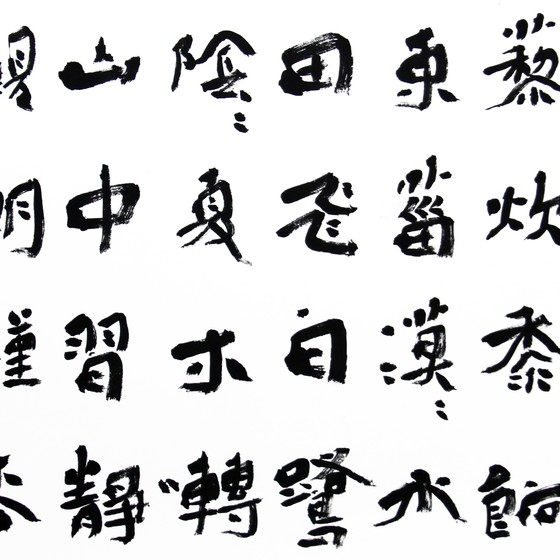 藜炊黍餉
東菑漠〻水
田飛白鷺
陰〻夏木囀
山中習靜